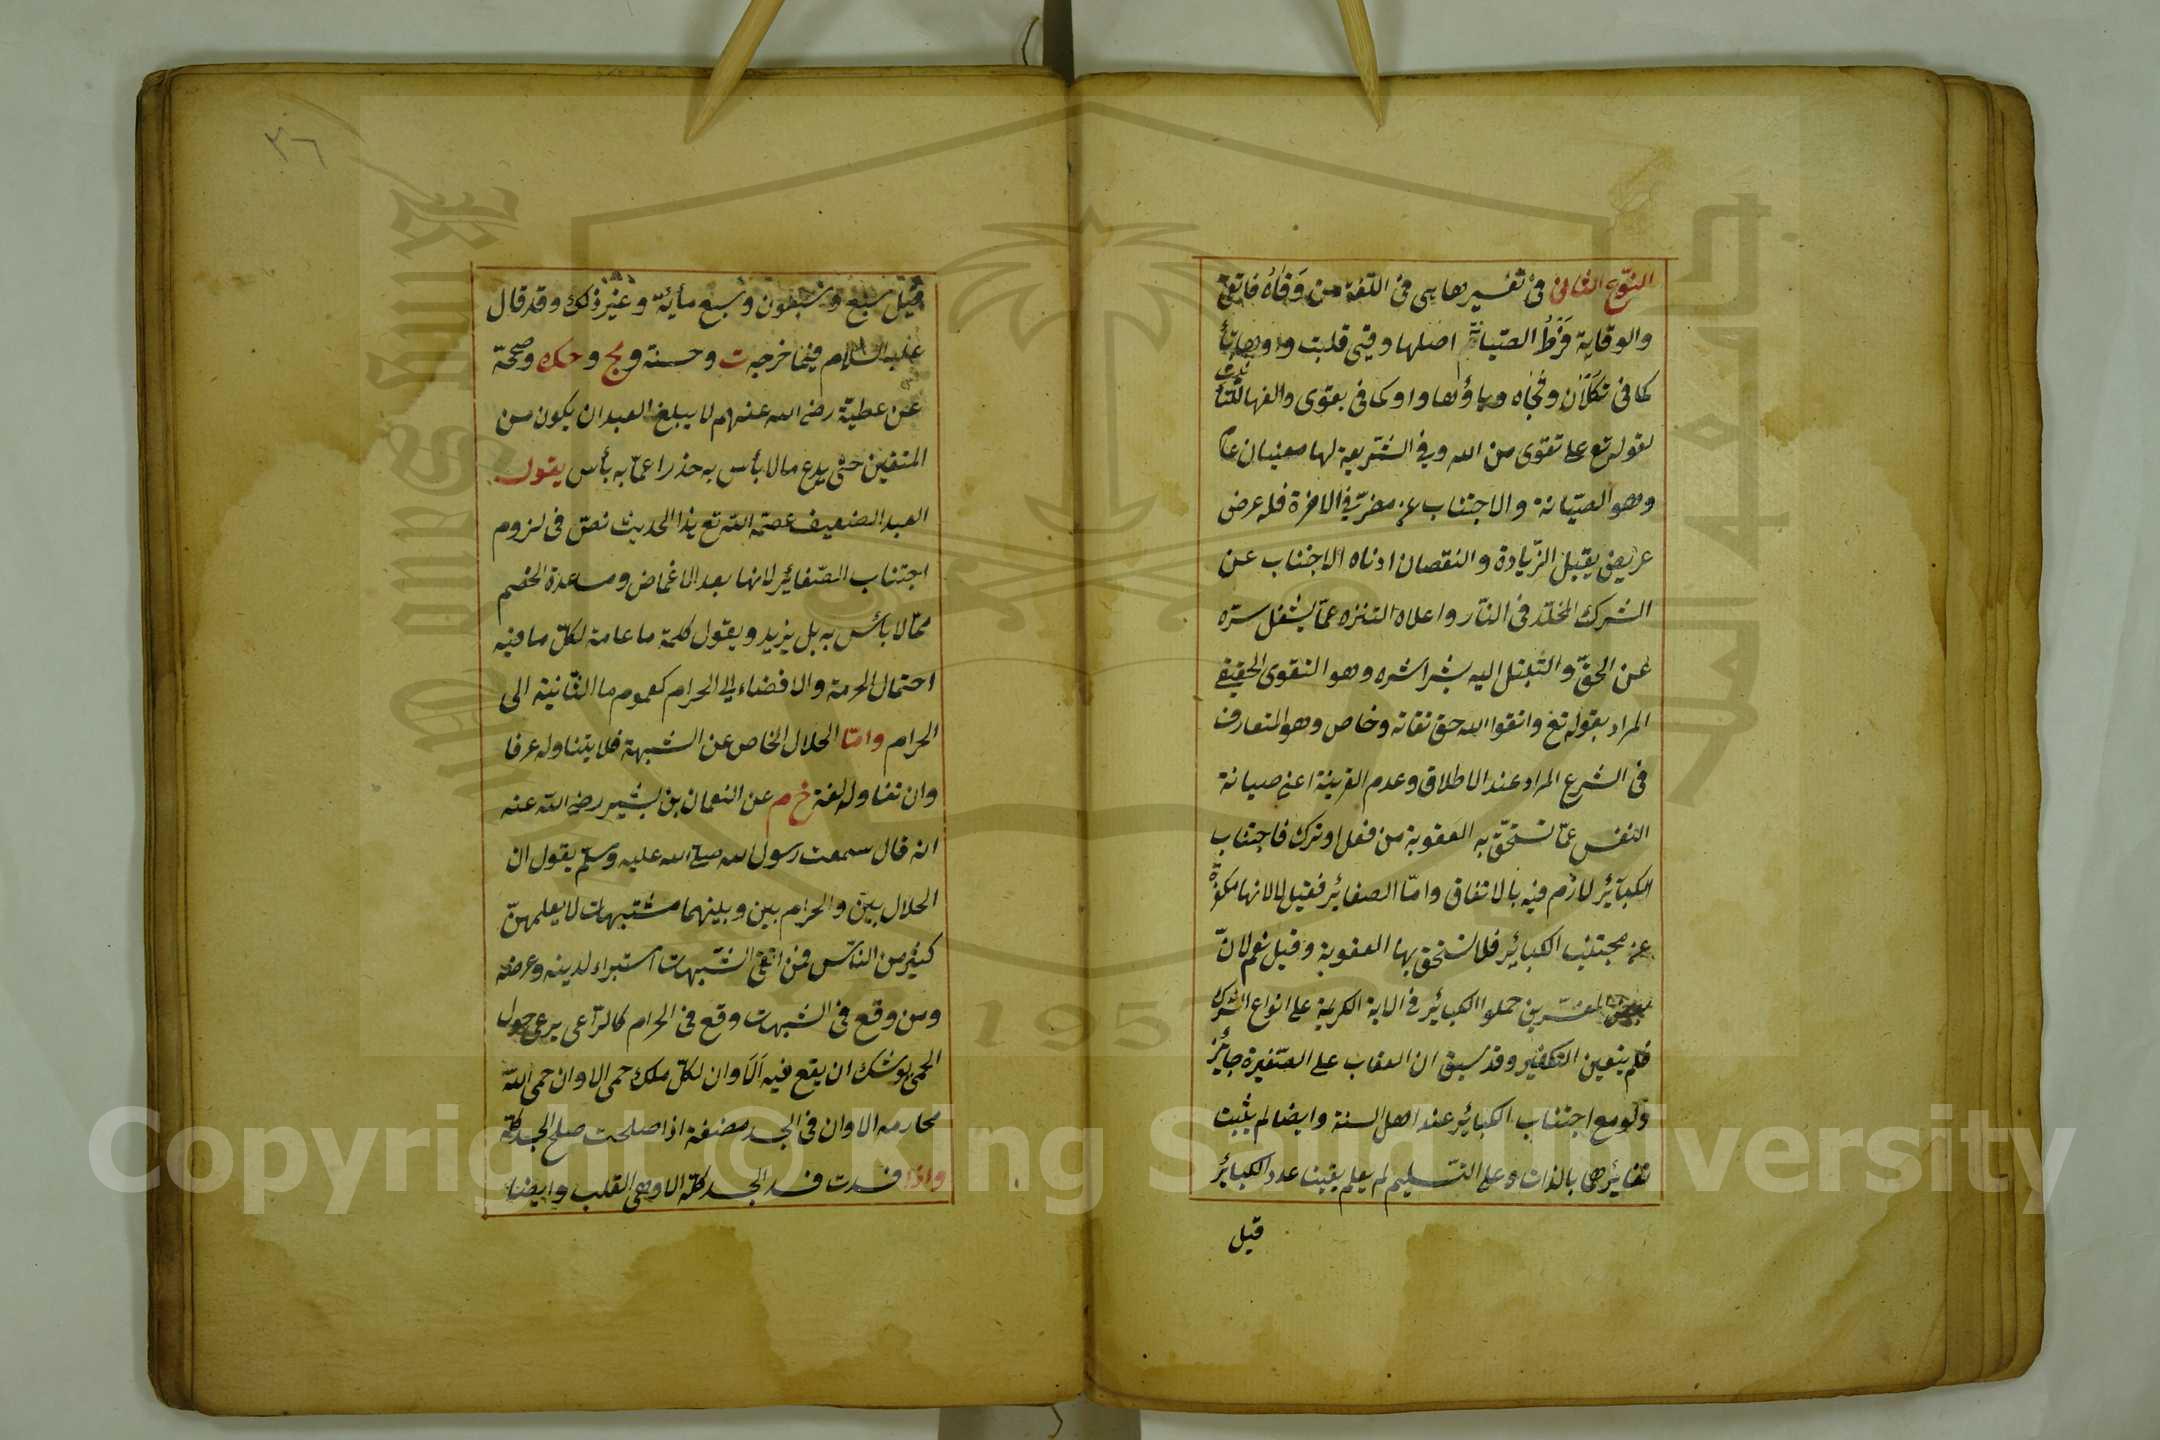 النوع الثانى فى تفسيرها هى فى اللغة من وقاه فاتقى
والوقاية فرط الصيانة اصلها وقيى قلبت واوها تاء
كما فى تكلان وتجاه وياؤها واوا كما فى بقوى والفها للتأنيث
لقوله تع على تقوى من الله وفى الشريعة لها معنيان عام
وهو الصيانة والاجتناب عن مضر فى الاخرة فله عرض
عريض يقبل الزيادة والنقصان ادناه الاجتناب عن
الشرك المخلد فى النار واعلاه التنزه عما يشغل سره
عن الحق والتبتل اليه بشراشره وهو التقوى الحقيقى
المراد بقوله تع واتقوا الله حق تقاته وخاص وهو المتعارف
فى الشرع المراد عند الاطلاق وعدم القرينة اعنى صيانة
النفس عما تستحق به العقوبة من فعل او ترك فاجتناب
الكبائر لازم فيه بالاتفاق واما الصغائر فقيل لا لانها مكفرة
عن مجتنب الكبائر فلا تستحق بها العقوبة وقيل نعم لان
بعض المفسرين حملوا الكبائر فى الاية الكريمة على انواع الشرك
فلم يتعين التكفير وقد سبق ان العقاب على الصغيرة جائز
ولو مع اجتناب الكبائر عند اهل السنة وايضا لم يثبت
تغايرها بالذات وعلى التسليم لم يعلم يقينا عدد الكبائر
قيل
٣٦
قيل سبع وسبعون وسبع مأية وغير ذلك وقد قال
عليه السلام فيما خرجه ت وحسنه ومج وحك وصححه
عن عطية رضى الله عنهم لا يبلغ العبد ان يكون من
المتقين حتى يدع ما لا بأس به حذرا عما به بأس يقول
العبد الضعيف عصمه الله تع هذا الحديث نص فى لزوم
اجتناب الصغائر لانها بعد الاغماض ومساعدة الخصم
مما لا بأس به بل يزيد ويقول كلمة ما عامة لكل ما فيه
احتمال الحرمة والافضاء الى الحرام كعموم ما الثانية الى
الحرام واما الحلال الخاص عن الشبهة فلا يتناوله عرفا
وان تناوله لغة خ م عن النعمان بن بشير رضى الله عنه
انه قال سمعت رسول الله صلى الله عليه وسلم يقول ان
الحلال بين والحرام بين وبينهما مشتبهات لا يعلمهن
كثير من الناس فمن اتقى الشبهات استبراء لدينه وعرضه
ومن وقع فى الشبهات وقع فى الحرام كالراعى يرعى حول
الحمى يوشك ان يقع فيه الا وان لكل ملك حمى الا وان حمى الله
محارمه الا وان فى الجسد مضغة اذا صلحت صلح الجسد كله
واذا فسدت فسد الجسد كله الا وهى القلب وايضا
Copyright © King Saud University
King Saud University
1957